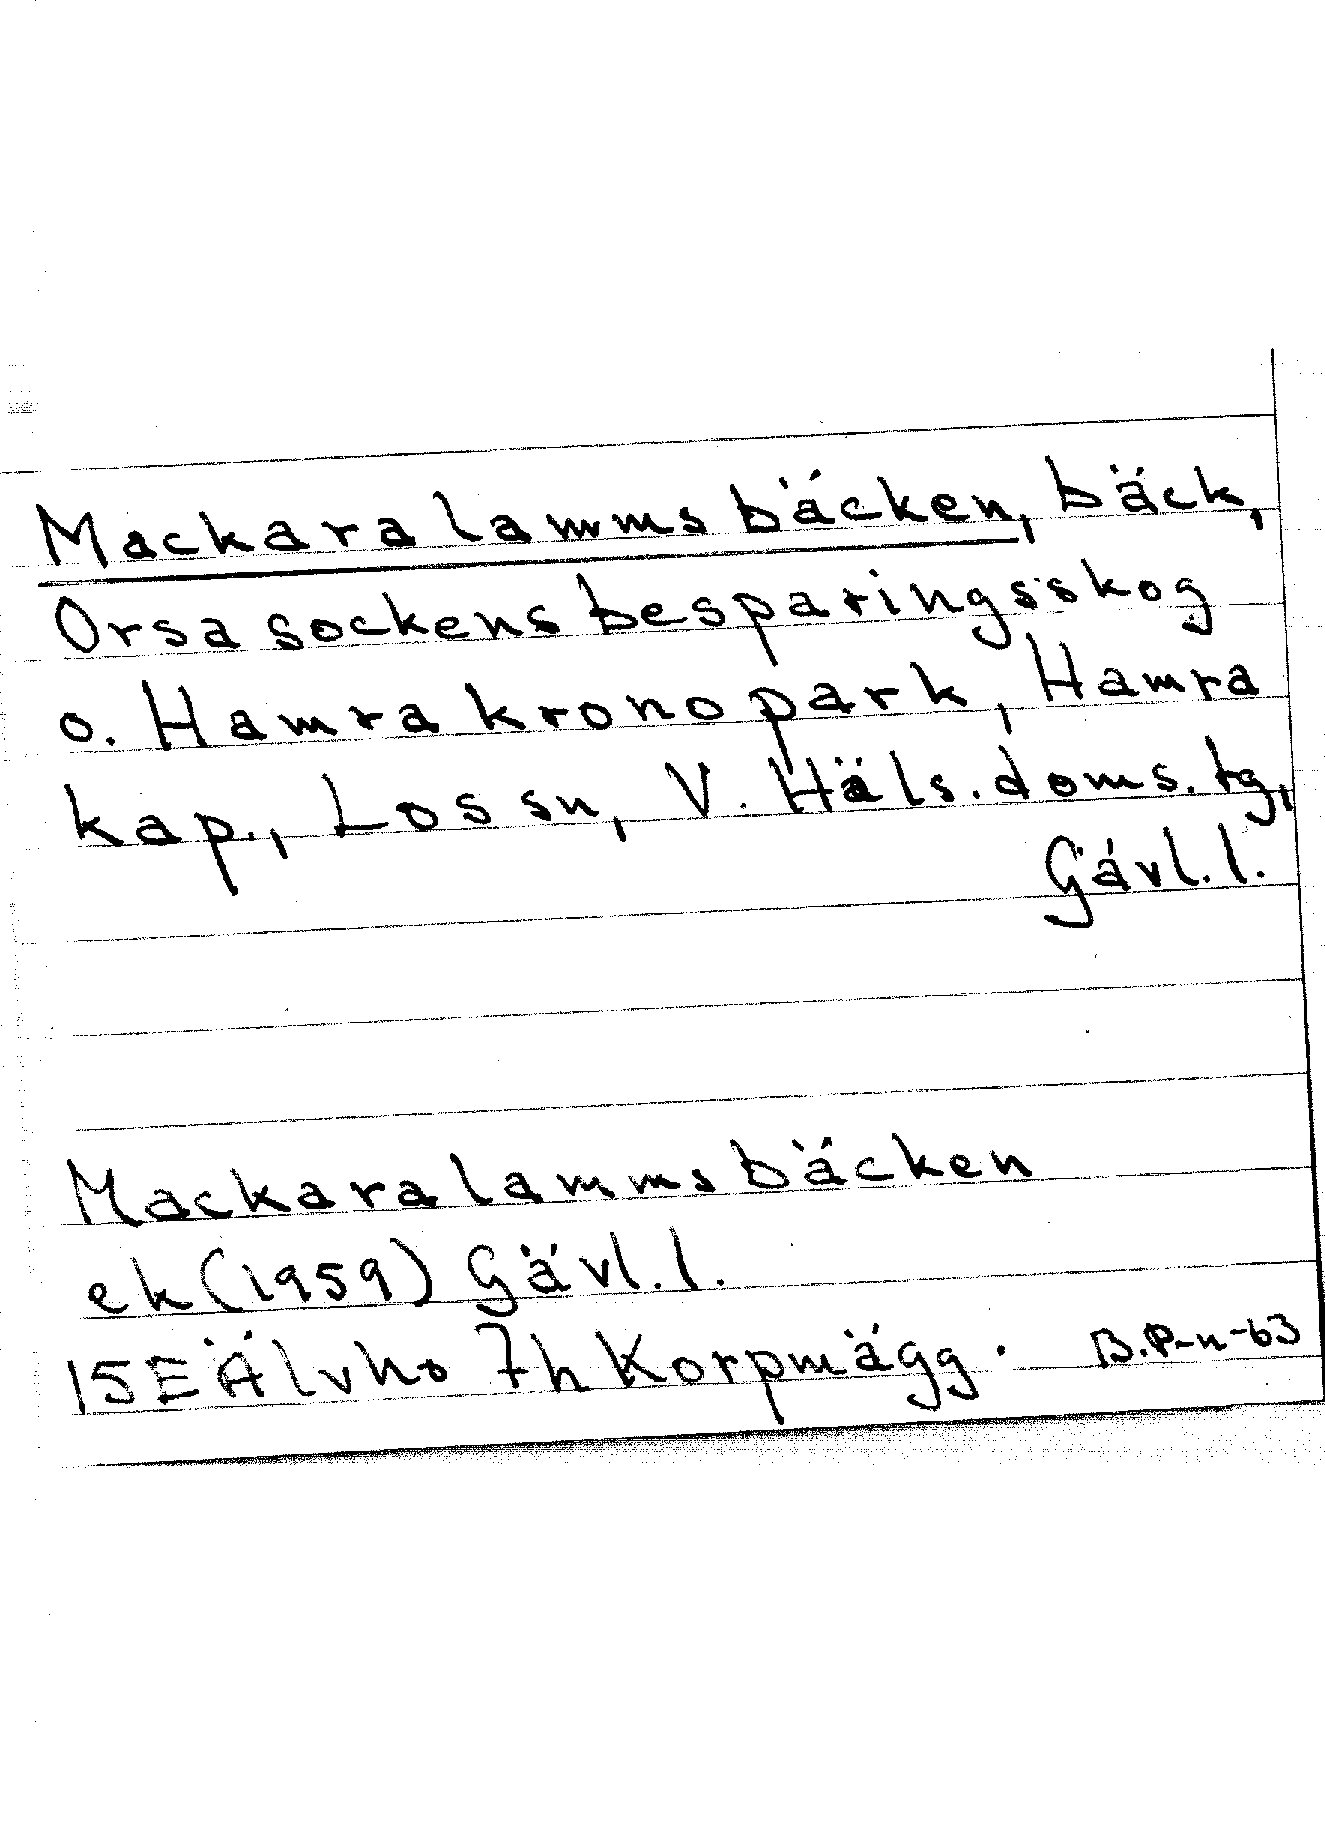 Mackaralammsbäcken, bäck,
Orsa sockens besparingsskog
o. Hamra kronopark, Hamra
kap., Los sn, V. Häls. doms. tg,
Gävl. l.
Mackaralammsbäcken
ek (1959) Gävl. l.
15E Älvho 7h Korpmägg.
B.P-n-63